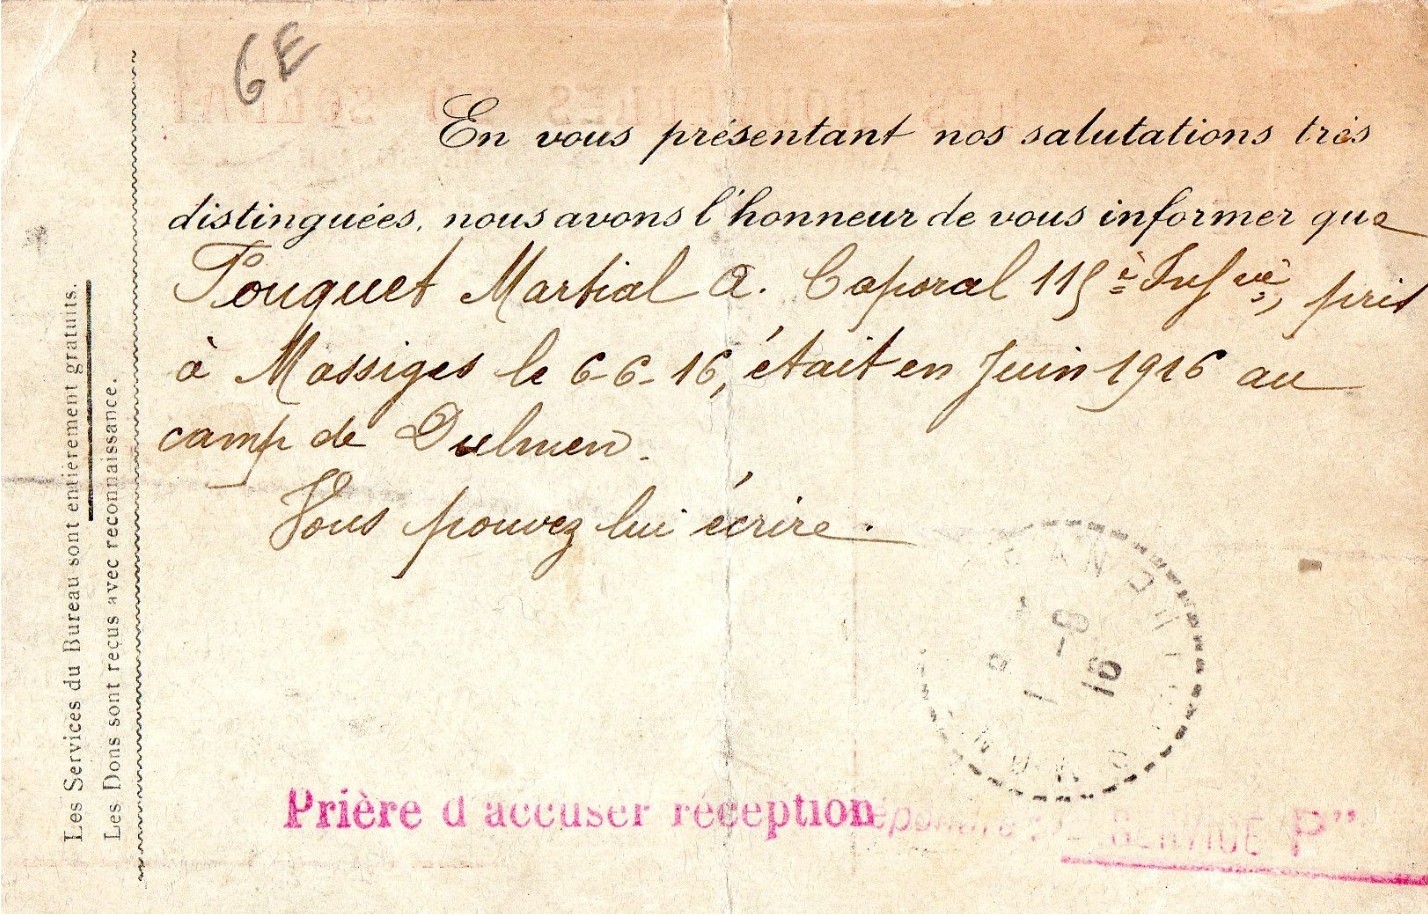 6E
En vous présentant nos salutations très
distinguées, nous avons l'honneur de vous informer que
Fouquet Martial A. Caporal 115è Infie, pris
à Massiges le 6-6-16, était en Juin 1916 au
camp de Dulmen.
Vous pouvez lui écrire.
Les Services du Bureau sont entièrement gratuits.
Les Dons sont reçus avec reconnaissance.
Prière d'accuser réception
Répondre : SERVICE P"